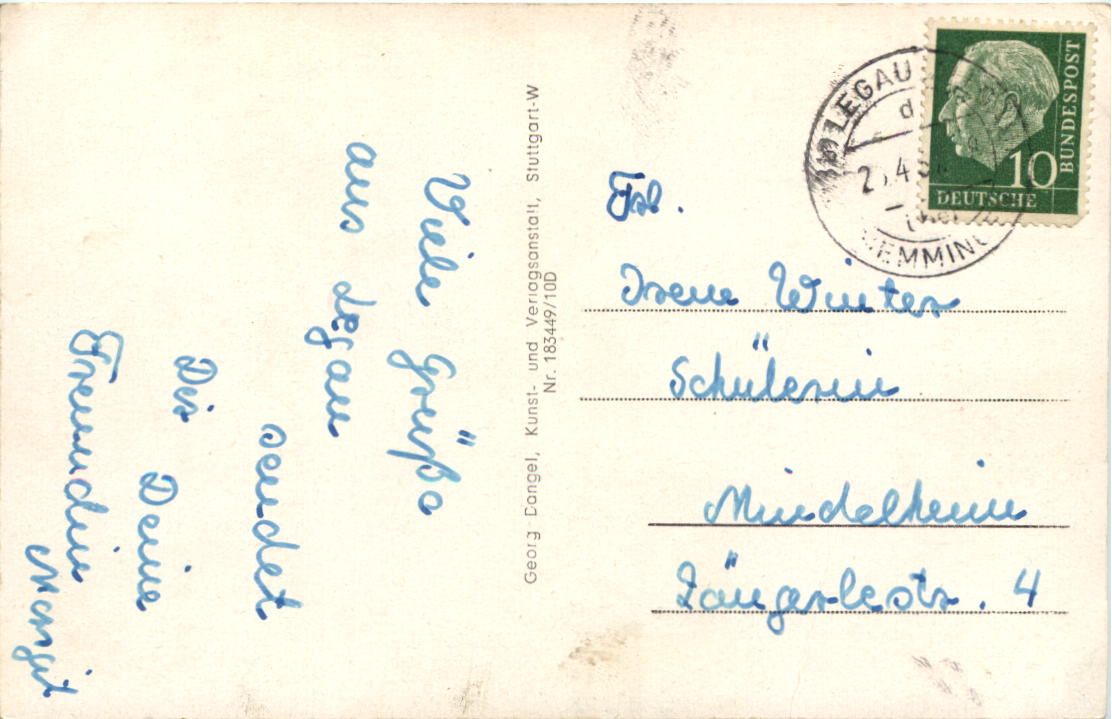 Viele Grüße
aus Legau
sendet
Dir Deine
Freundin
Margit
Georg Dangel, Kunst- und Verlagsanstalt, Stuttgart-W
Nr. 183449/10D
LEGAU
d
MEMMING
DEUTSCHE
BUNDESPOST
10
Frl.
Irene Winter
Schülerin
Mindelheim
Zängerlestr. 4